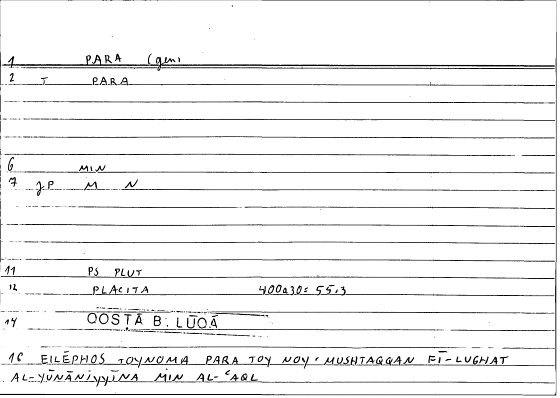 1 PARA (gen)
2 T PARA
6 MIN
7 JP M N
11 PS PLUT
12 PLACITA 400a30 = 55.3
14 QOSTĀ B. LŪQĀ
16 EILĒPHOS TOYNOMA PARA TOY NOY 'MUSHTAQQAN FĪ-LUGHAT
AL-YŪNĀNIYYĪNA MIN AL-ʿAQL